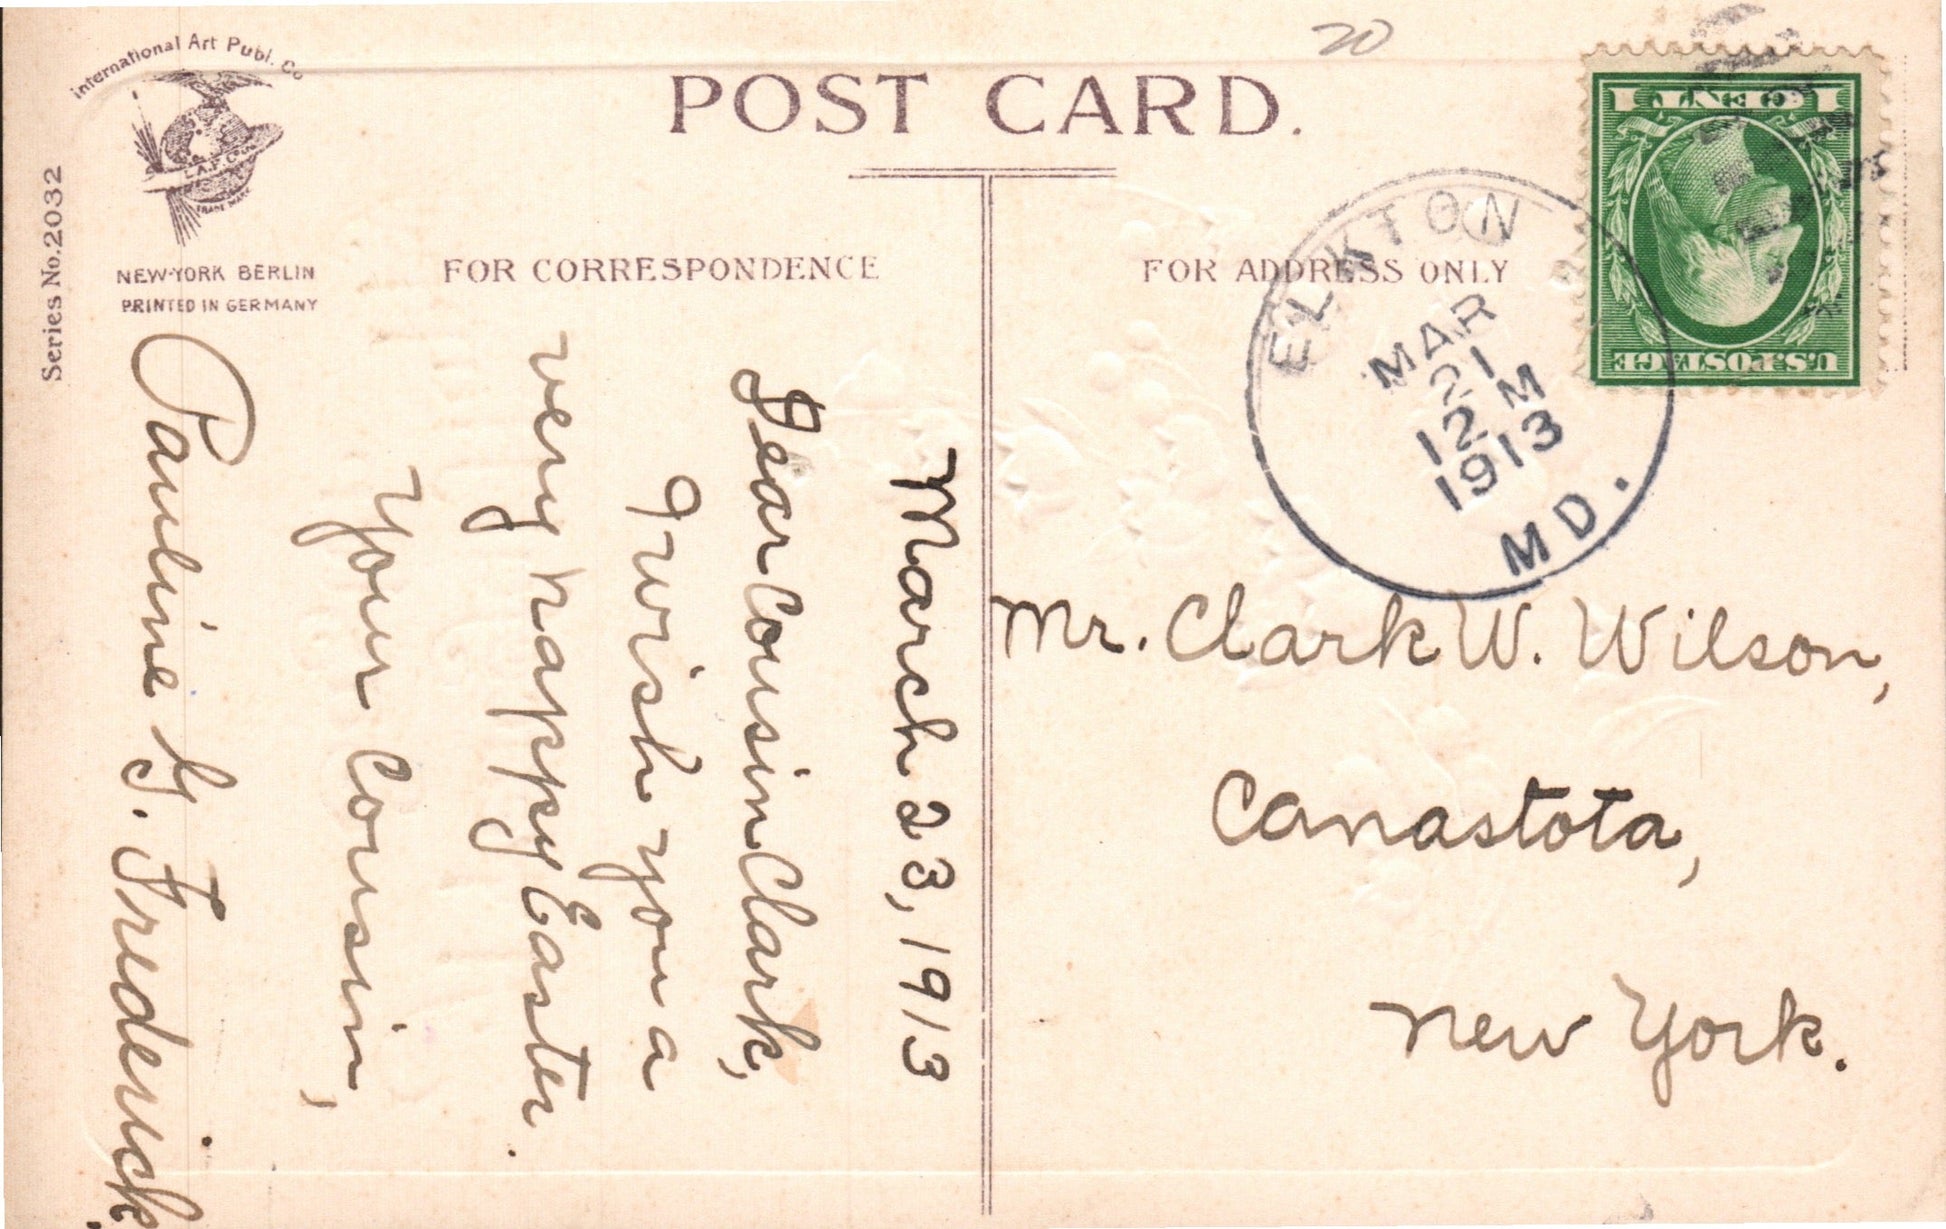 International Art Publ. Co
I.A.P. Co.
TRADE MARK
NEW-YORK BERLIN
PRINTED IN GERMANY
Series No. 2032
20
POST CARD.
FOR CORRESPONDENCE
FOR ADDRESS ONLY
March 23, 1913
Dear Cousin Clark,
I wish you a
very happy Easter.
Your Cousin,
Pauline G. Frederick.
ELKTON
MAR
21
12 M
1913
MD.
1 CENT 1
U.S. POSTAGE
Mr. Clark W. Wilson,
Canastota,
New York.